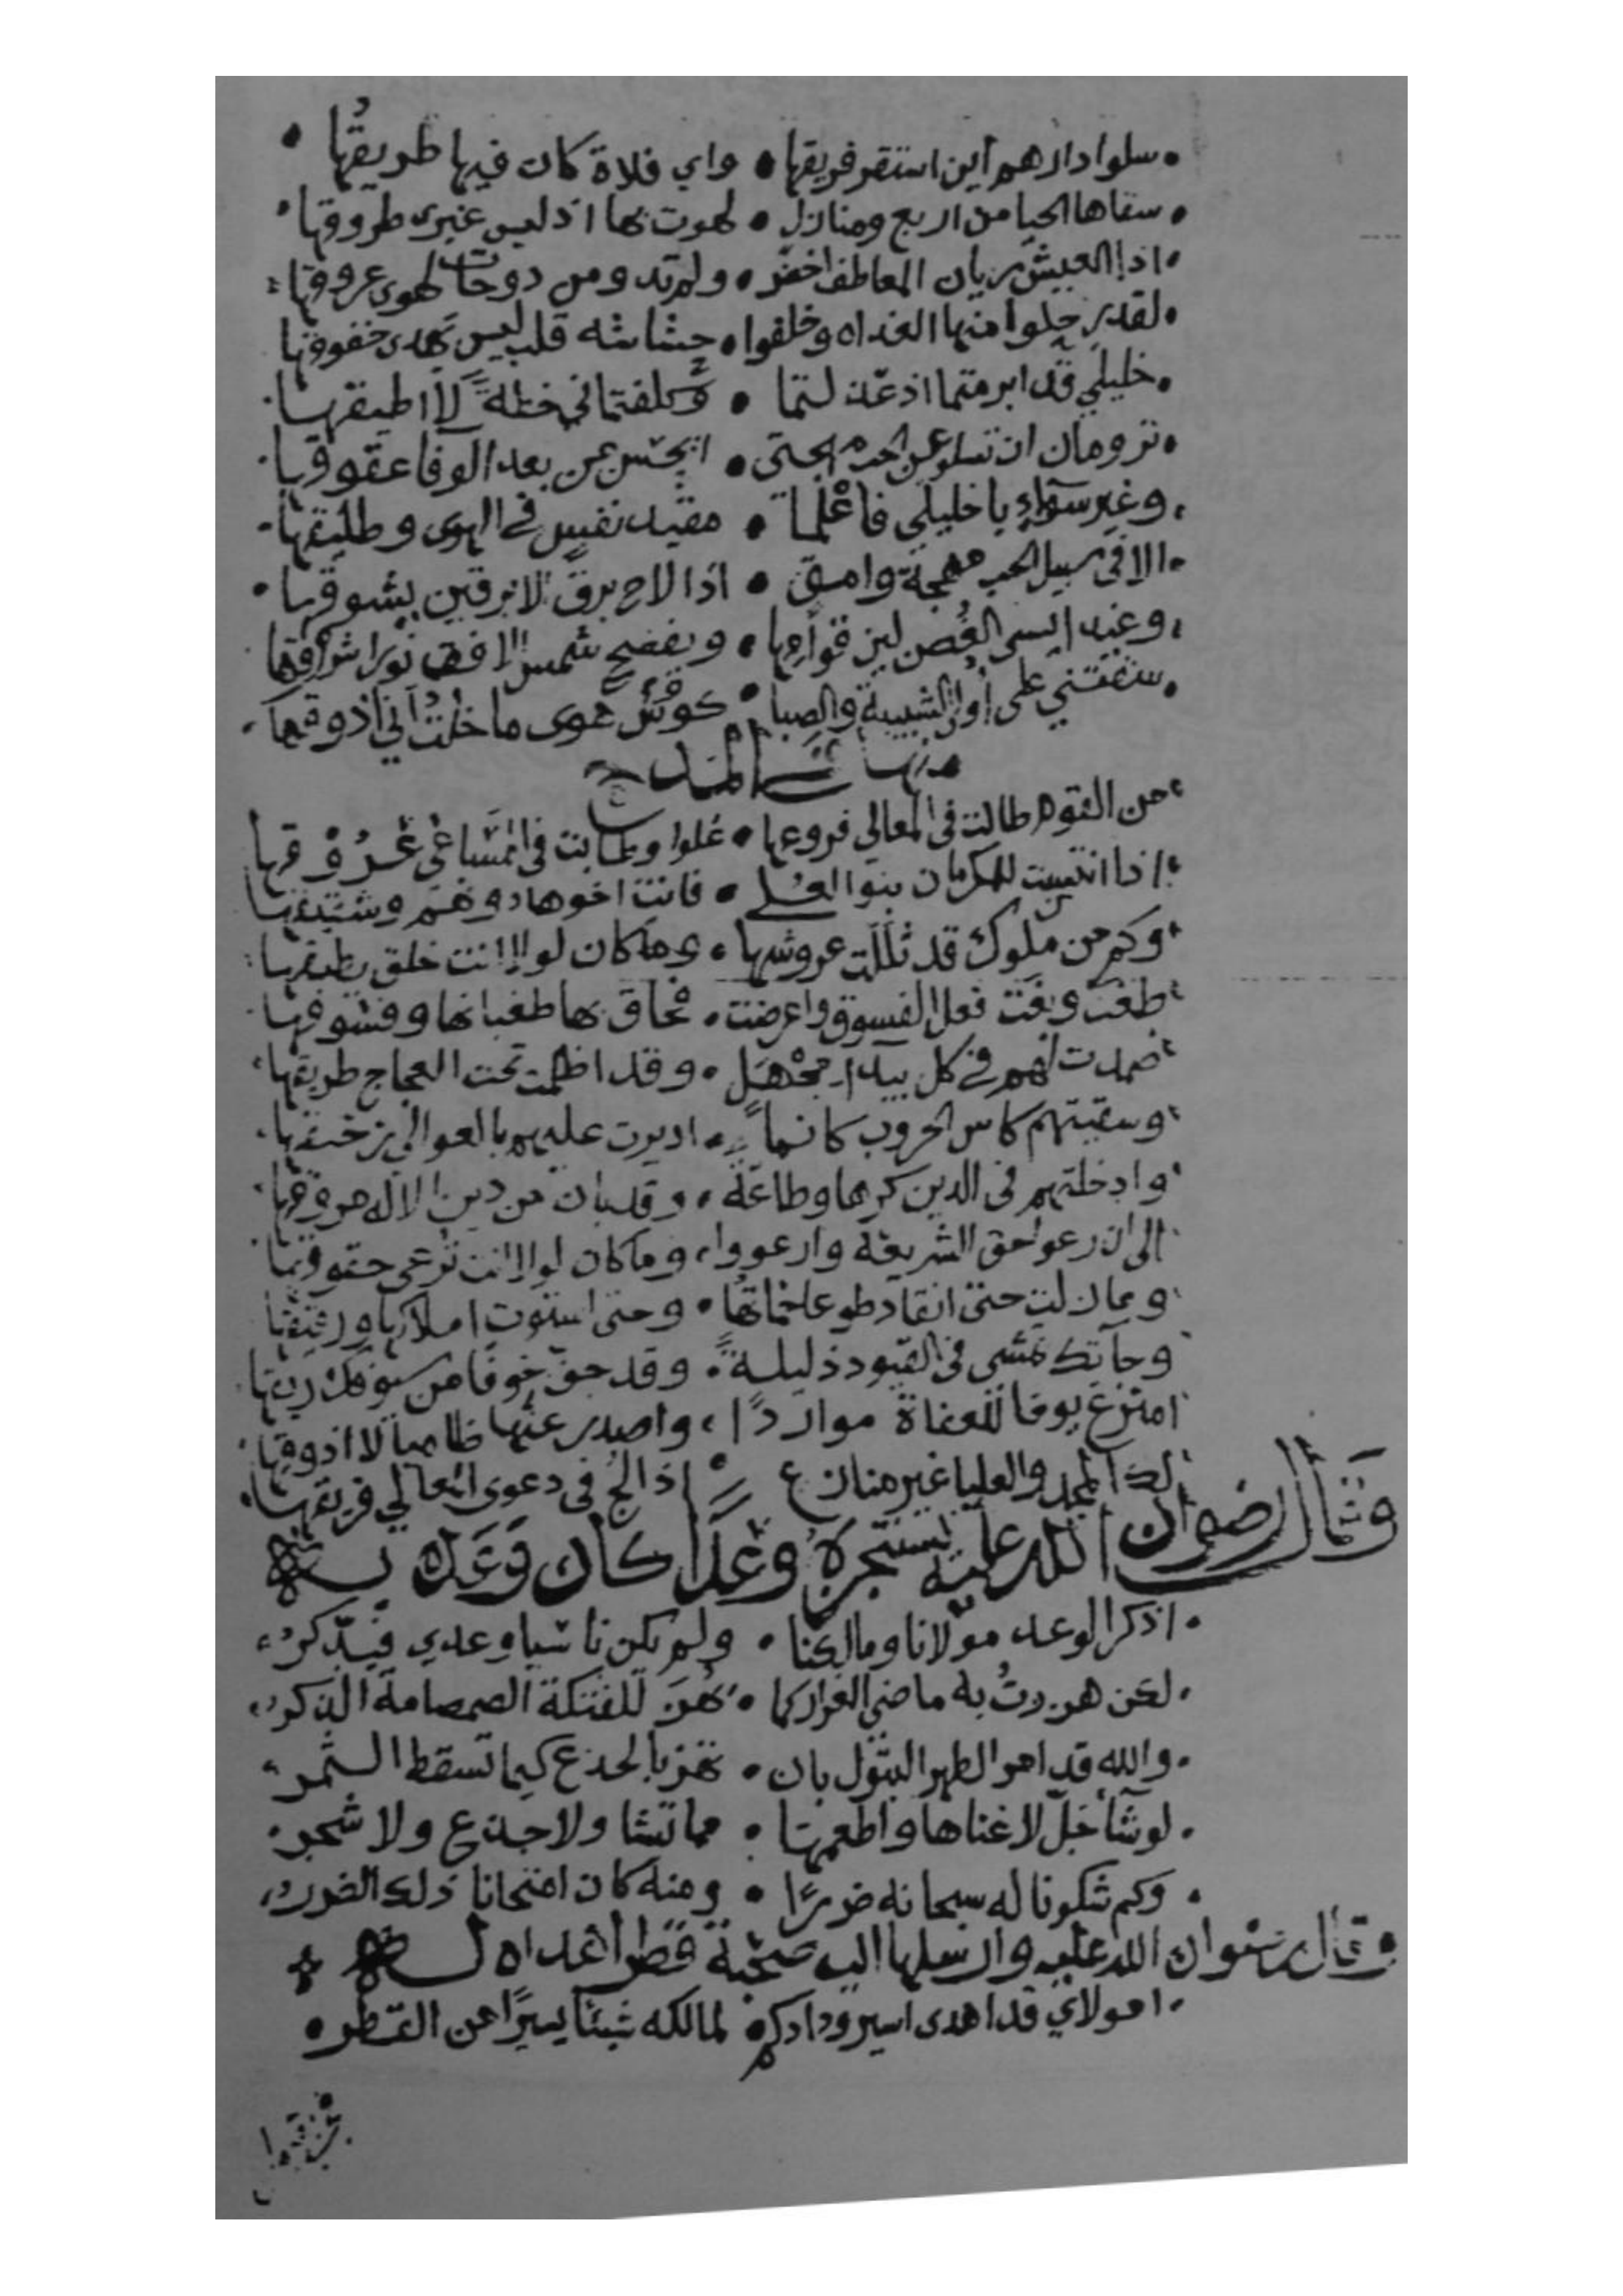 سلوا دارهم اين استقر فريقها • واي فلاة كان فيها طريقُها
سقاها الحيا من اربع ومنازل • لهوت بها اذ ليس غيرى طروقها
اذ العيش ريان المعاطف اخضر • ولم تد ومن دوحات لهوى عروقها
لقد رحلوا منها الغداه وخلفوا • حشاشه قلب ليس يهدى خفوقها
خليلي قد ابرمتما اذ عذلتما • وكلفتماني خطة لا اطيقها
ترومان ان تسلو عن احبه • ايحسن من بعد الوفا عقوقها
وغير سواء يا خليلي فاعْلما • مقيد نفس في الهوى وطليقها
الا في سبيل الحب مهجة وامق • اذا لاح برق الابرقين يشوقها
وغيد ايسى الغُصن لين قوامها • ويفضح شمس الافق نورا شروقها
سقتني على اولى الشبيبة والصبا • كوُس هوى ما خلتُ أني أذوقها
منها في المدح
من القوم طالت في المعالي فروعها • عُلوا وطابت في المساعي عُرُوقها
اذا انتسبت للمكرمات بنوا العُلى • فانت اخوها دونهم وشقيقها
وكم من ملوك قد ثللت عروشها • وما كان لولا انت خلق يطيقها
طغت وبغت فعل الفسوق واعرضت • فحاق بها طغيانها وفسوقها
صمدت لهم في كل بيداء مجْهل • وقد اظلمت تحت العجاج طريقها
وسقيتهم كاس الحروب كانما • اديرت عليهم بالعوالي رحيقها
وادخلتهم في الدين كرها وطاعة • وقد بان من دين الاله مروقها
الى ان رعوا حق الشريعة وارعووا • وما كان لولا انت تُرعى حقوقها
وما زلت حتى انقاد طوعا عاتها • وحتى استوت املاكها ورقيقها
وجآتك تمشي في القيود ذليلة • وقد جف خوفا من سيوفك ريقها
امترع يوفا للعفاة مواردًا • واصدر عنها ظاميا لا اذوقها
لك المجد والعليا غير منازع • اذا لج في دعوى المعالي فريقها
وقال رضوان الله عليه يستنجزهُ وعدًا كان وَعَدَه به
اذكر الوعد مولانا ومالكنا • ولم يكن ناسيا وعدي فيدّكرُ
لكن هززتُ به ماضي الغرار كما • يُهز للفتكة الصمصامة الذكر
والله قد امر الطهر البتول بان • تهز بالجذع كيما تسقط الثمر
لو شآ جَلّ لاغناها واطعمها • مما تشا ولا جذع ولا شجر
وكم شكونا له سبحانه ضررًا • ومنه كان امتحانا ذلك الضرر
وقال رضوان الله عليه وارسلها اليه صحبة قطر أهداه له
امولاي قد اهدى اسير ودادكم • لمالكه شيئا يسيرًا من القطر